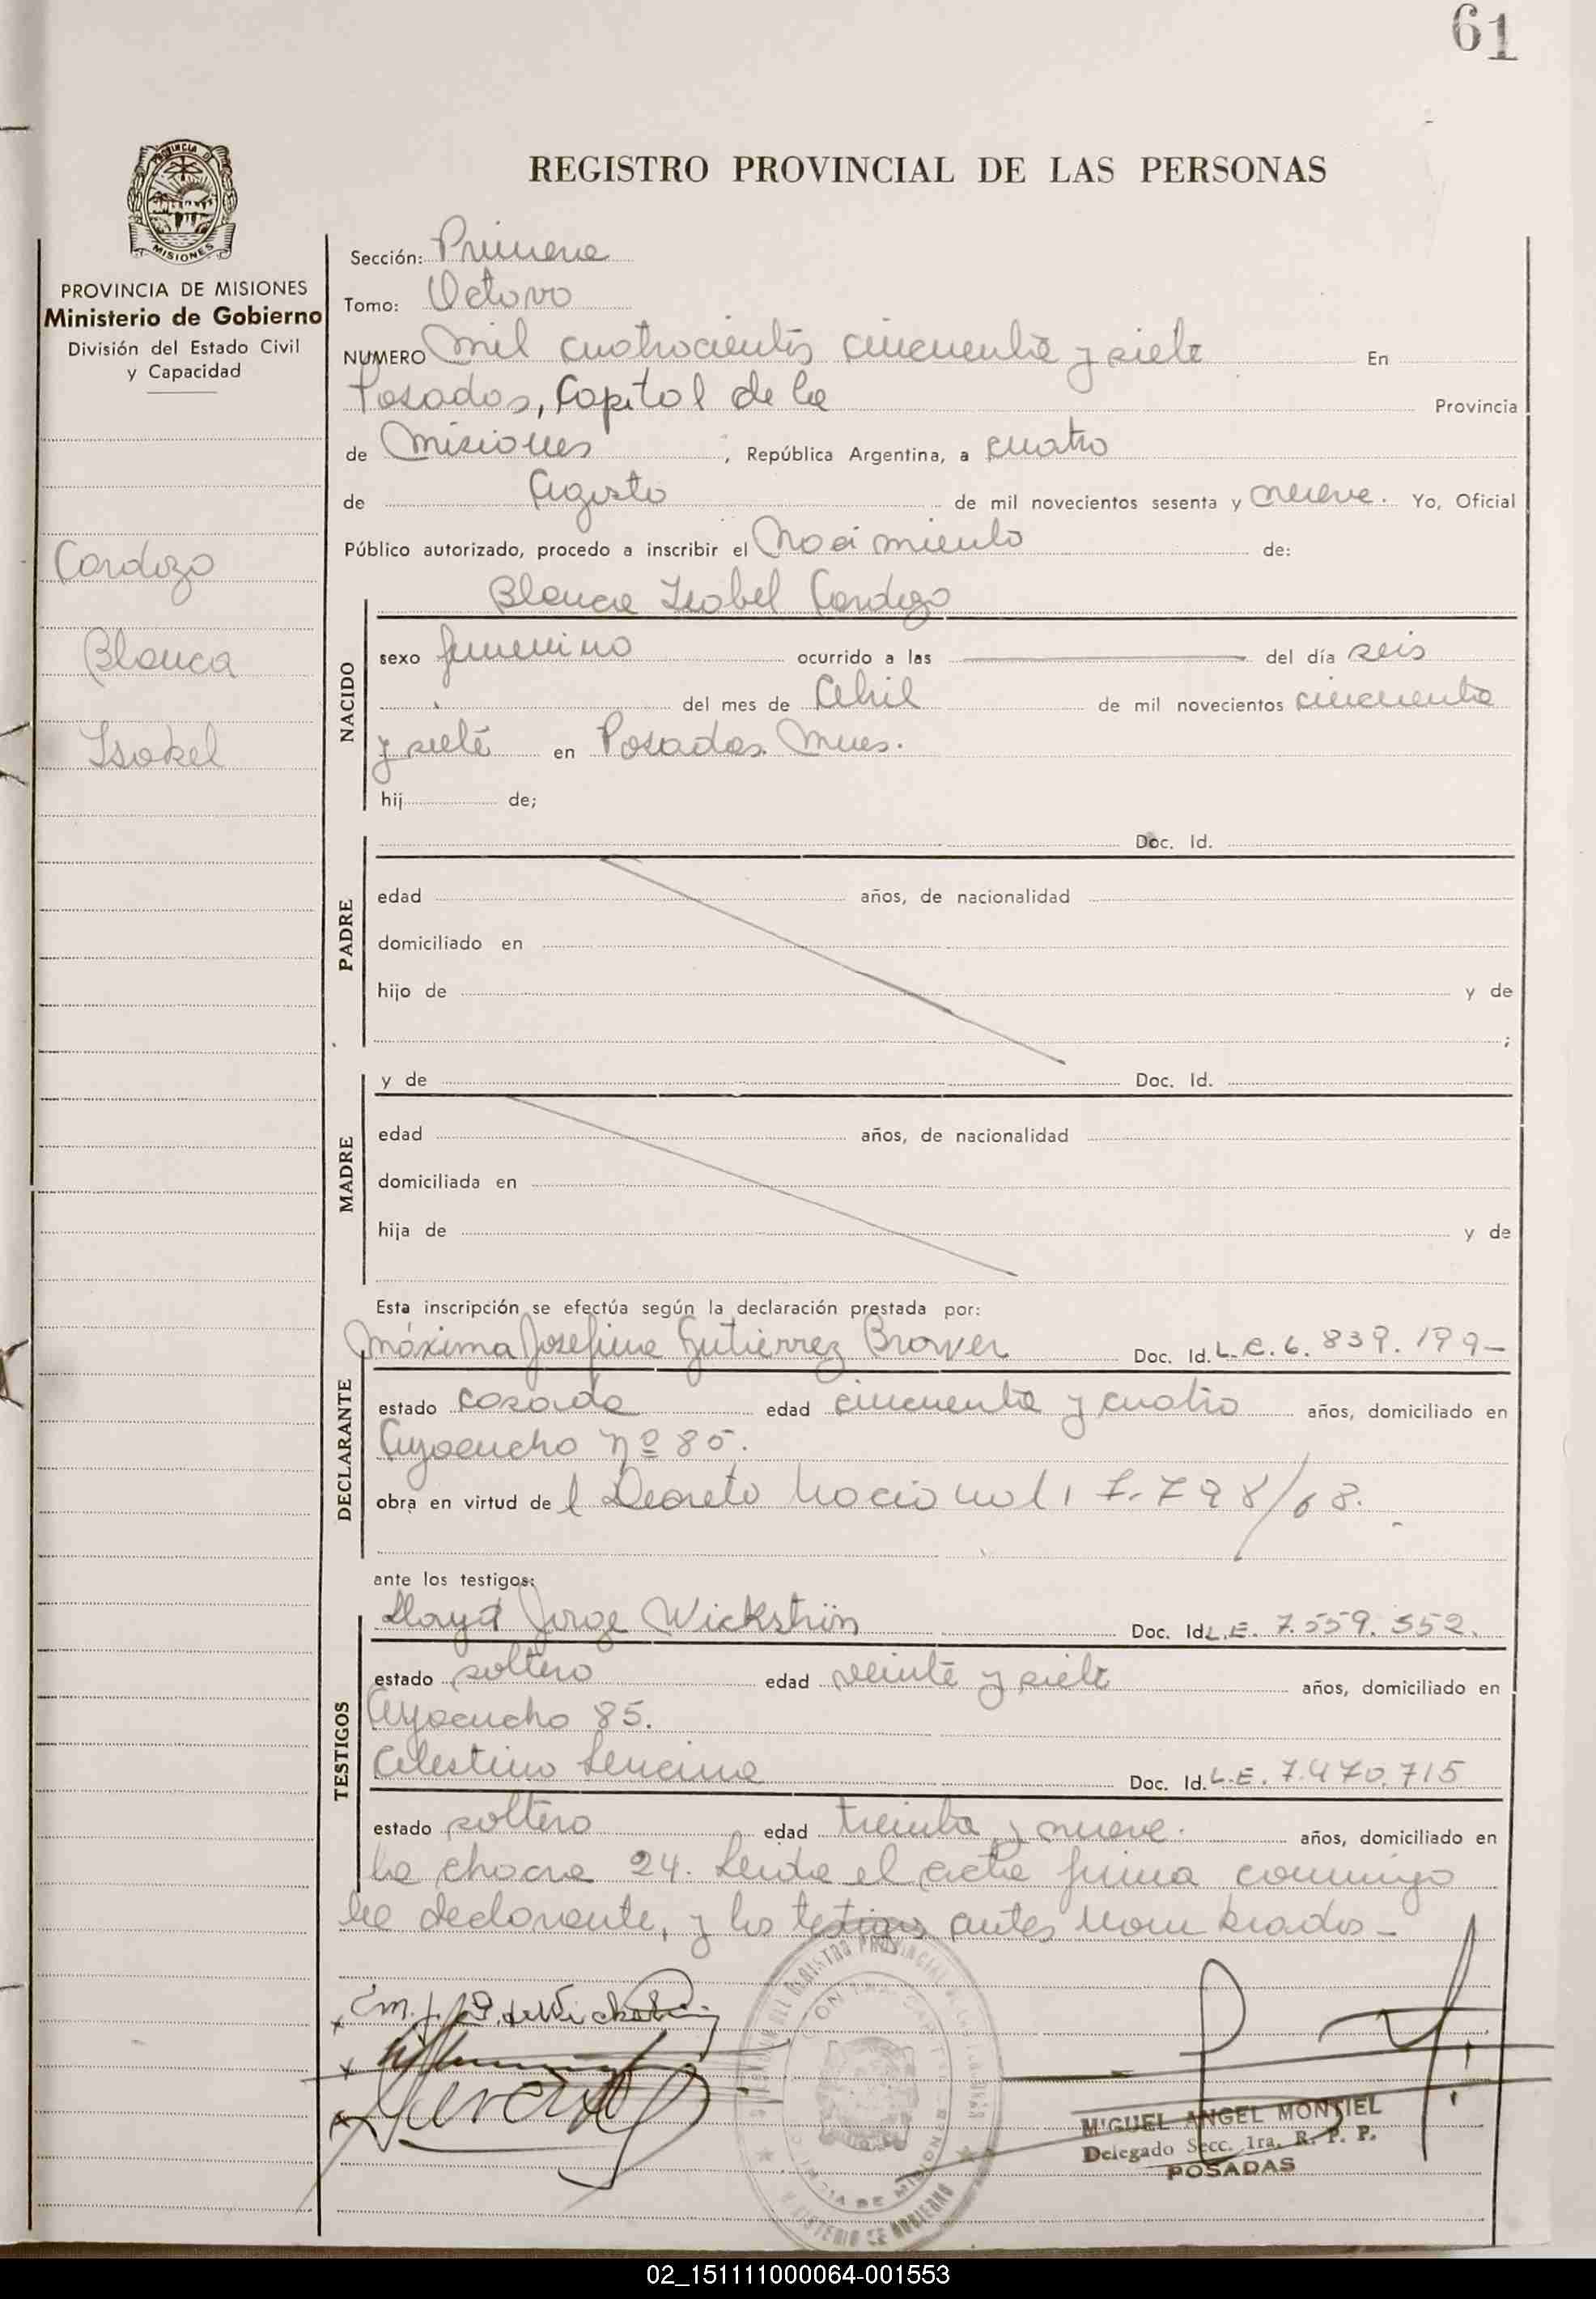 61
PROVINCIA DE
MISIONES
REGISTRO PROVINCIAL DE LAS PERSONAS
PROVINCIA DE MISIONES
Ministerio de Gobierno
División del Estado Civil
y Capacidad
Cardozo
Blanca
Isabel
Sección: Primera
Tomo: Octavo
NUMERO Mil cuatrocientos cincuenta y siete En
Posadas, Capital de la Provincia
de Misiones, República Argentina, a cuatro
de Agosto de mil novecientos sesenta y nueve. Yo, Oficial
Público autorizado, procedo a inscribir el Nacimiento de:
Blanca Isabel Cardozo
NACIDO
sexo femenino ocurrido a las del día seis
del mes de Abril de mil novecientos cincuenta
y siete en Posadas. Mnes.
hij de;
PADRE
Doc. Id.
edad años, de nacionalidad
domiciliado en
hijo de y de
;
MADRE
y de Doc. Id.
edad años, de nacionalidad
domiciliada en
hija de y de
Esta inscripción se efectúa según la declaración prestada por:
DECLARANTE
Máxima Josefina Gutierrez Brower Doc. Id. L.C. 6.839.199-
estado casada edad cincuenta y cuatro años, domiciliado en
Ayacucho nº 85.
obra en virtud de l Decreto Nacional 17.798/68.
ante los testigos:
TESTIGOS
Jorge Wickström Doc. Id. L.E. 7.559.552.
estado soltero edad veinte y siete años, domiciliado en
Ayacucho 85.
Celestino Lencina Doc. Id. L.E. 7.470.715
estado soltero edad treinta y nueve. años, domiciliado en
la chacra 24. Leida el acta firma conmigo
la declarante, y los testigos antes nombrados-
MIGUEL ANGEL MONTIEL
Delegado Secc. 1ra. R. P. P.
POSADAS
MINISTERIO DE GOBIERNO
02_151111000064-001553